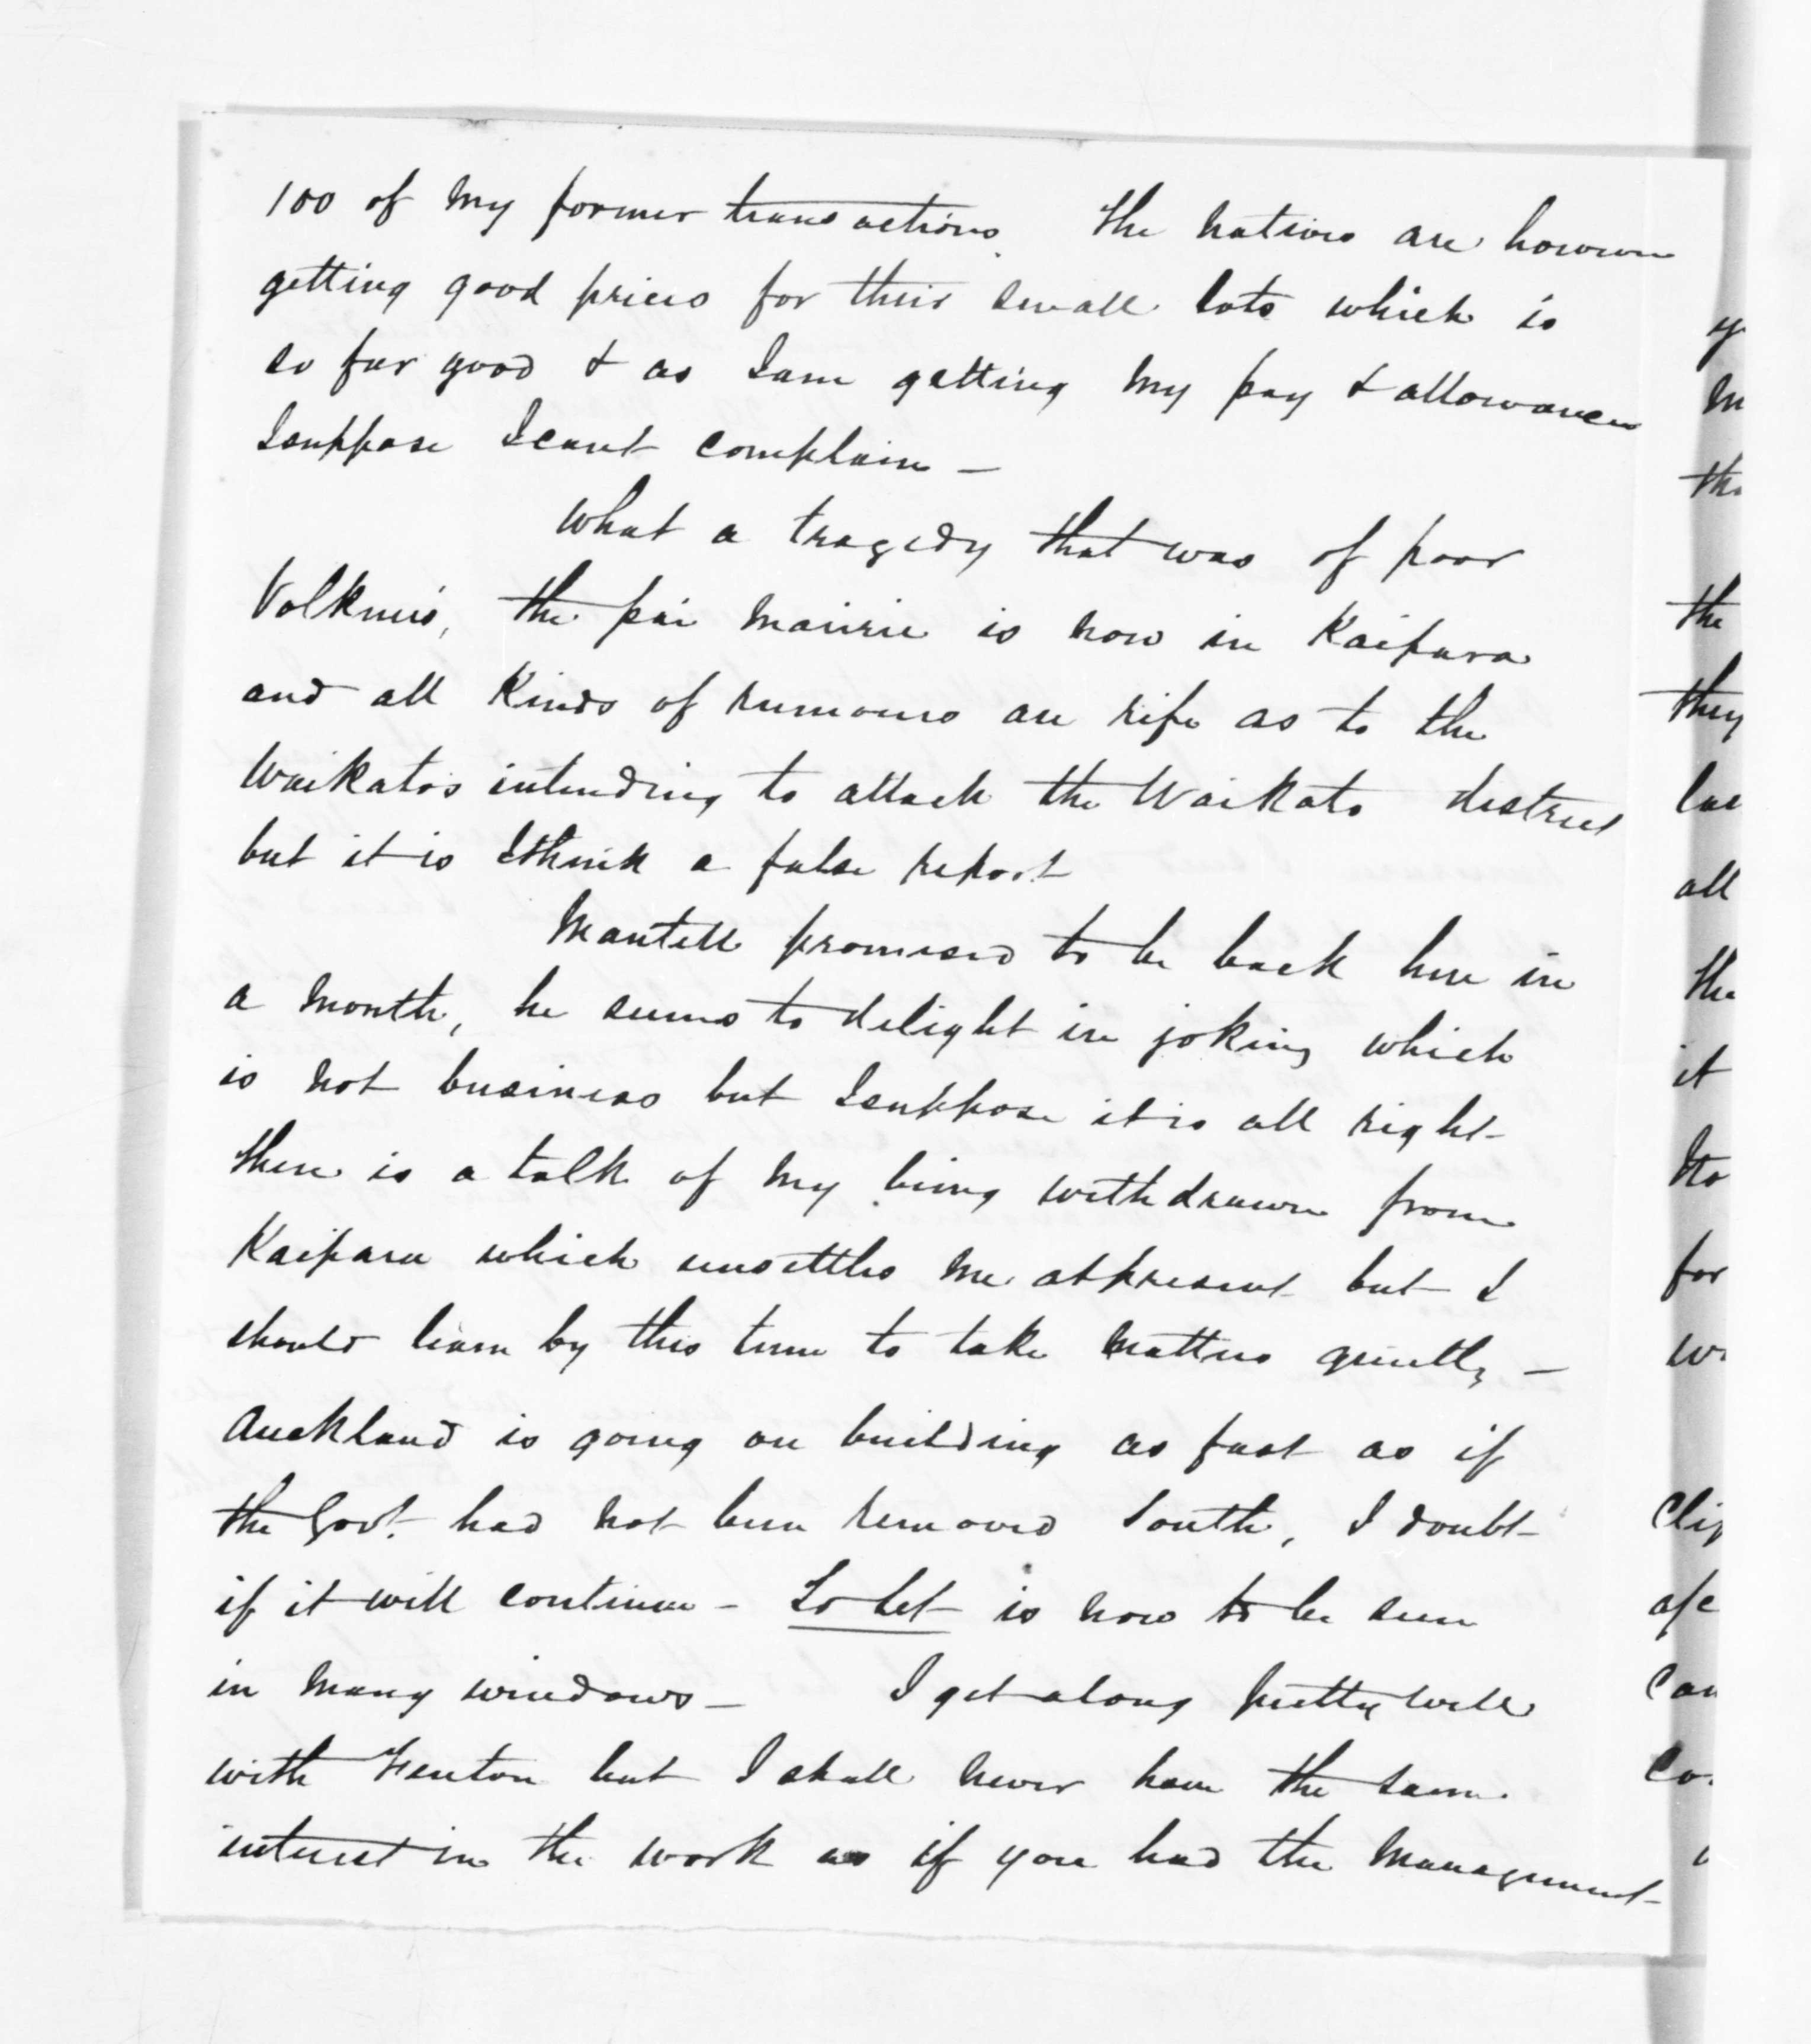 100 of my former transactions. The natives are however
getting good prices for their small lots which is
so far good & as I am getting my pay & allowances
I suppose I cant complain –
What a tragedy that was of poor
Volkner's, the pai mairire is now in Kaipara
and all kinds of rumours are rife as to the
Waikatos intending to attack the Waikato district
but it is I think a false report
Mantell promised to be back here in
a month, he seems to delight in joking which
is not business but I suppose it is all right –
there is a talk of my being withdrawn from
Kaipara which unsettles me at present but I
should learn by this time to take matters quietly –
Auckland is going on building as fast as if
the Govt. had not been removed South, I doubt
if it will continue – To let is now to be seen
in many windows – I get along pretty well
with Fenton but I shall never have the same
interest in the work as if you had the management
y
m
the
the
they
all
the
it
to
for
Clip
a/c
can